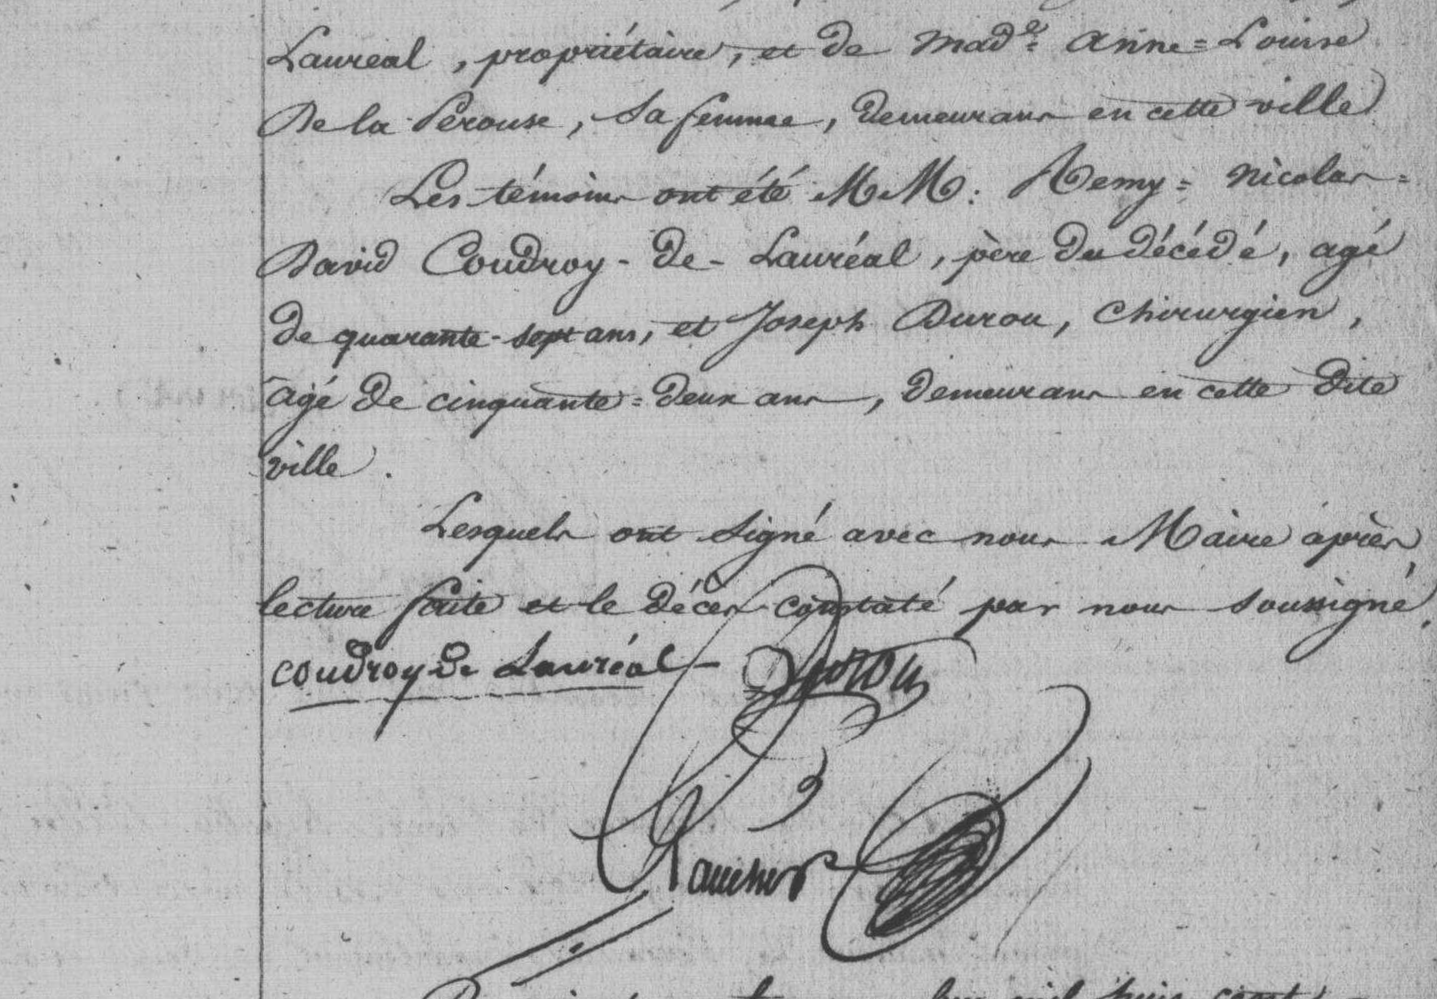 Lauréal, propriétaire, et de Mad.e Anne=Louise
De la Pérouse, Sa femme, demeurans en cette ville
Les témoins ont été MM: Remy=Nicolas=
David Coudroy-de-Lauréal, père du décédé, agé
de quarante-sept ans, et Joseph Durou, Chirurgien,
âgé de cinquante=deux ans, demeurans en cette dite
ville.
Lesquels ont signé avec nous Maire après
lecture faite et le décès constaté par nous soussigné.
coudroy de Lauréal Durou